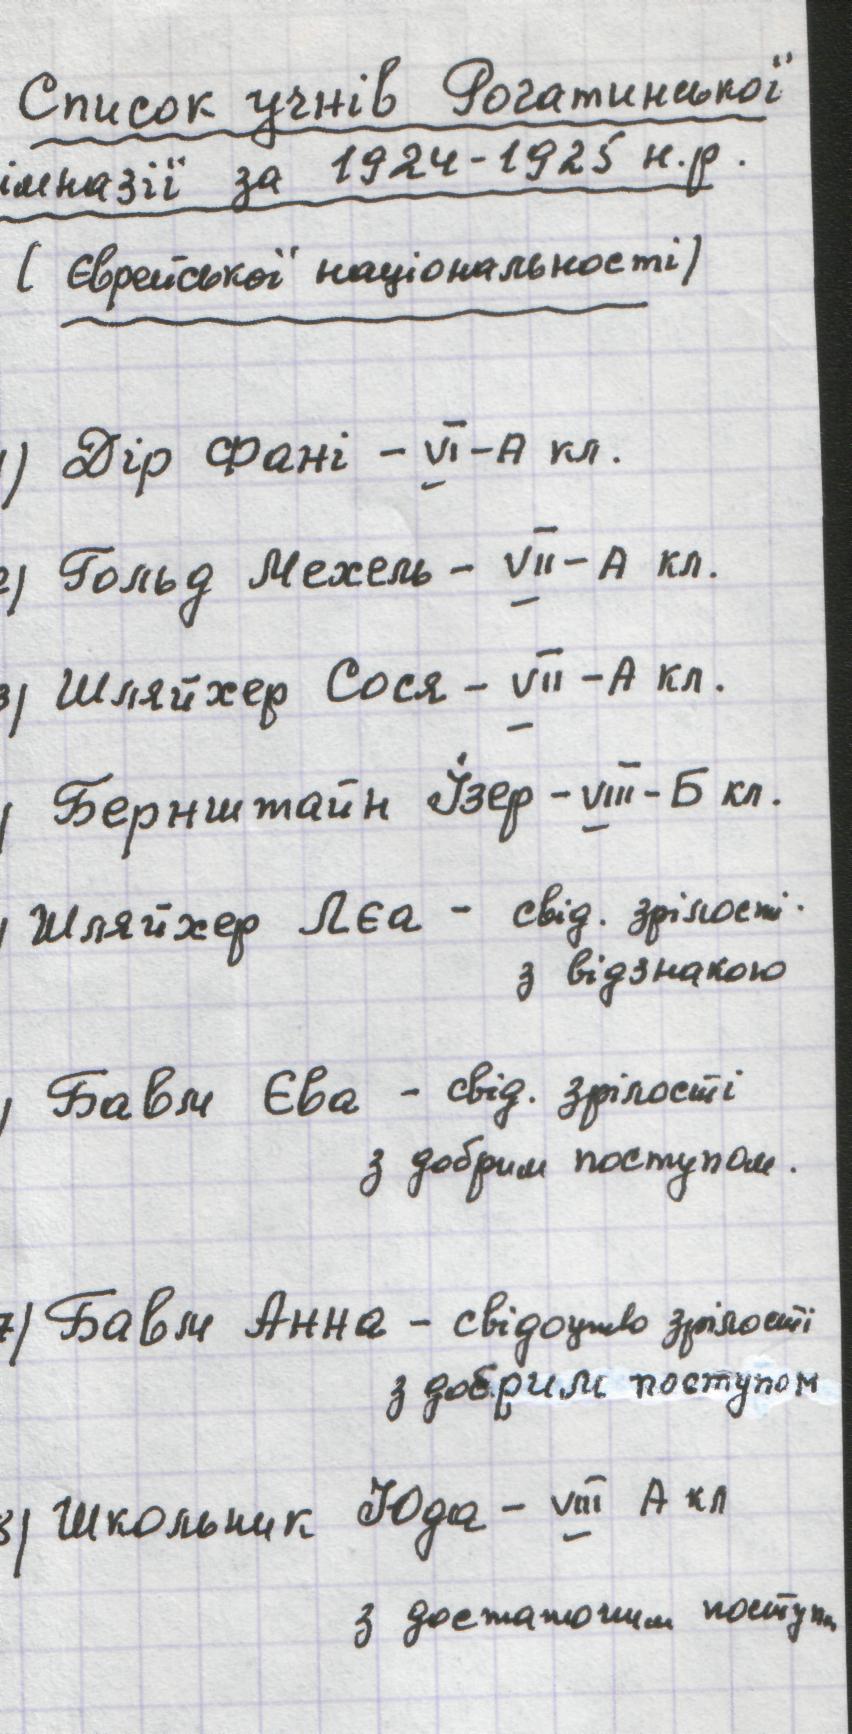 Список учнів Рогатинської
імназії за 1924-1925 н.р.
( Єврейської національності)
1) Дір Фані - VI-А кл.
2) Гольд Мехель - VII-А кл.
3) Шляйхер Сося - VII-А кл.
) Бернштайн Ізер - VIII-Б кл.
) Шляйхер Лєа - свід. зрілості
з відзнакою
) Бавм Єва - свід. зрілості
з добрим поступом.
7) Бавм Анна - свідоцтво зрілості
з добрим поступом
8) Школьник Юда - VIII А кл
з достаточим поступ